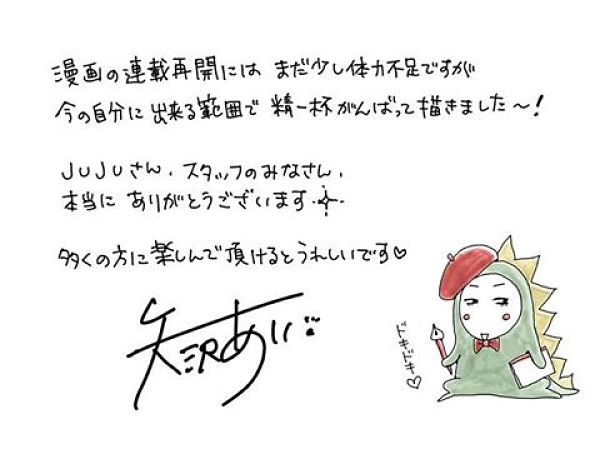 漫画の連載再開には まだ少し体力不足ですが
今の自分に出来る範囲で 精一杯がんばって描きました〜!
JUJUさん、スタッフのみなさん、
本当に ありがとうございます
多くの方に楽しんで頂けるとうれしいです♡
矢沢あい
ドキドキ♡